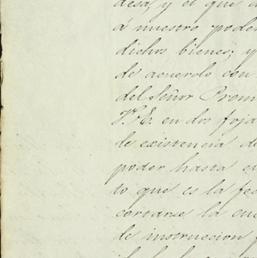 desa, y el que
á nuestro poder
dichos bienes; y
de acuerdo con
del Señor Prom
V. E. en dos foja
le existencia de
poder hasta e
to que es la fe
cortarse la cue
le instruccion